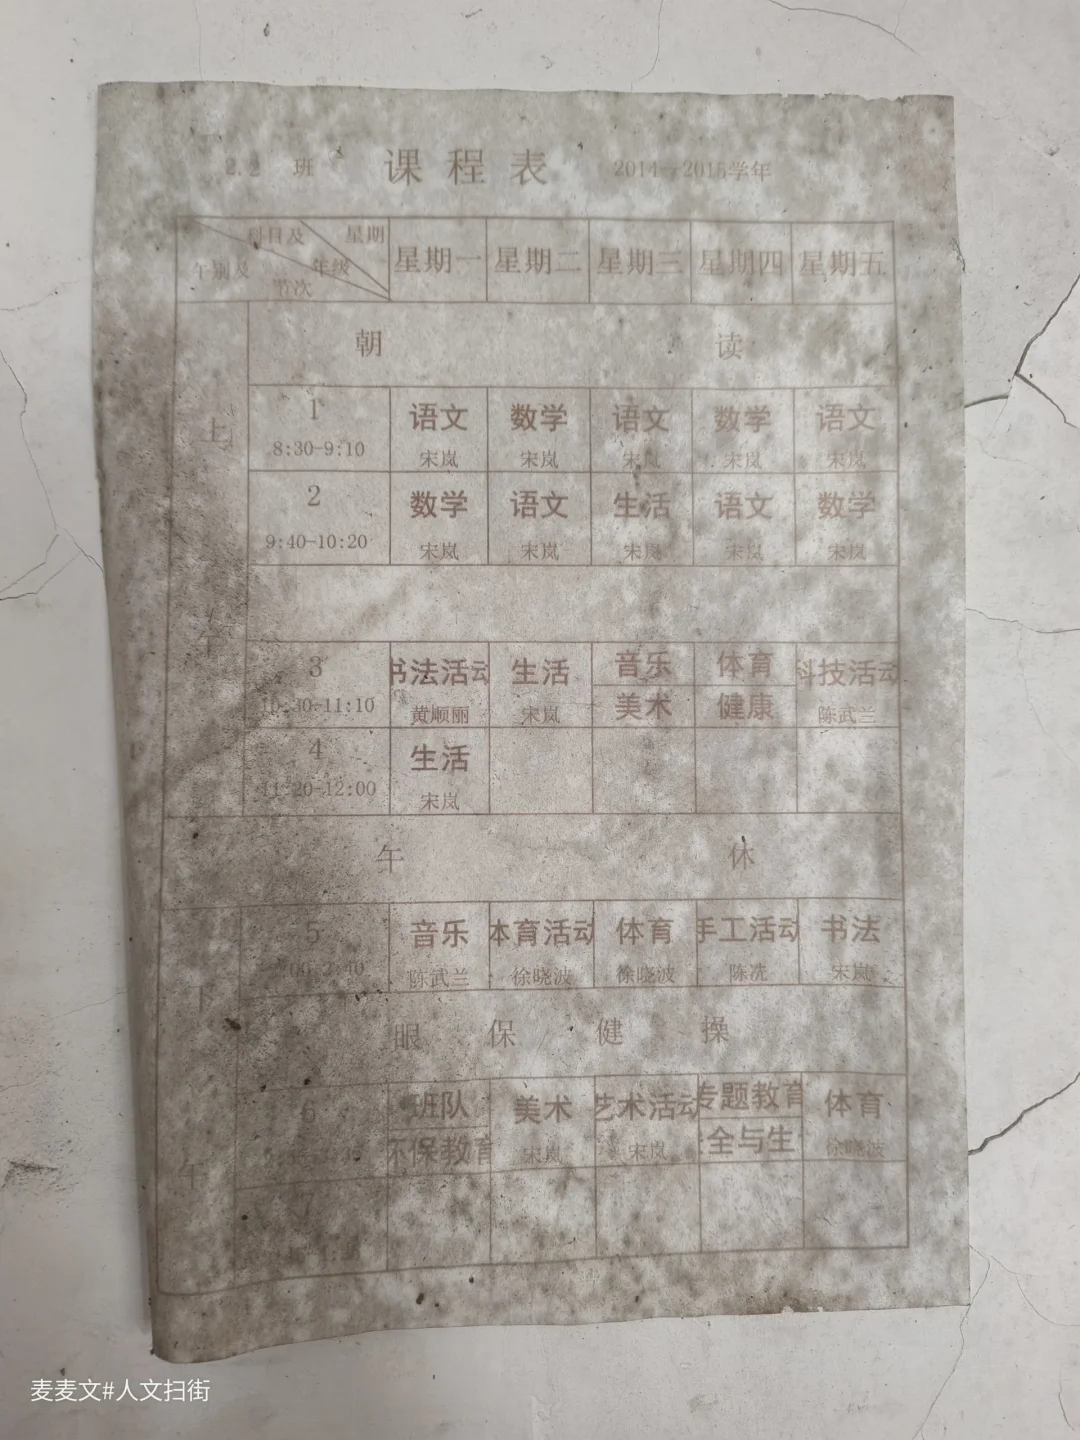 2.2 班 课程表 2014--2015学年
科目及 星期
午别及 年级
节次
星期一 星期二 星期三 星期四 星期五
朝 读
上
1 语文 数学 语文 数学 语文
8:30-9:10 宋岚 宋岚 宋岚 宋岚 宋岚
2 数学 语文 生活 语文 数学
9:40-10:20 宋岚 宋岚 宋岚 宋岚 宋岚
午
3 书法活动 生活 音乐 体育 科技活动
10:30-11:10 黄顺丽 宋岚 美术 健康 陈武兰
4 生活
11:20-12:00 宋岚
午 休
下
5 音乐 体育活动 体育 手工活动 书法
陈武兰 徐晓波 徐晓波 陈冼 宋岚
眼 保 健 操
午
6 班队 美术 艺术活动 专题教育 体育
保教育 宋岚 宋岚 全与生 徐晓波
7
麦麦文#人文扫街